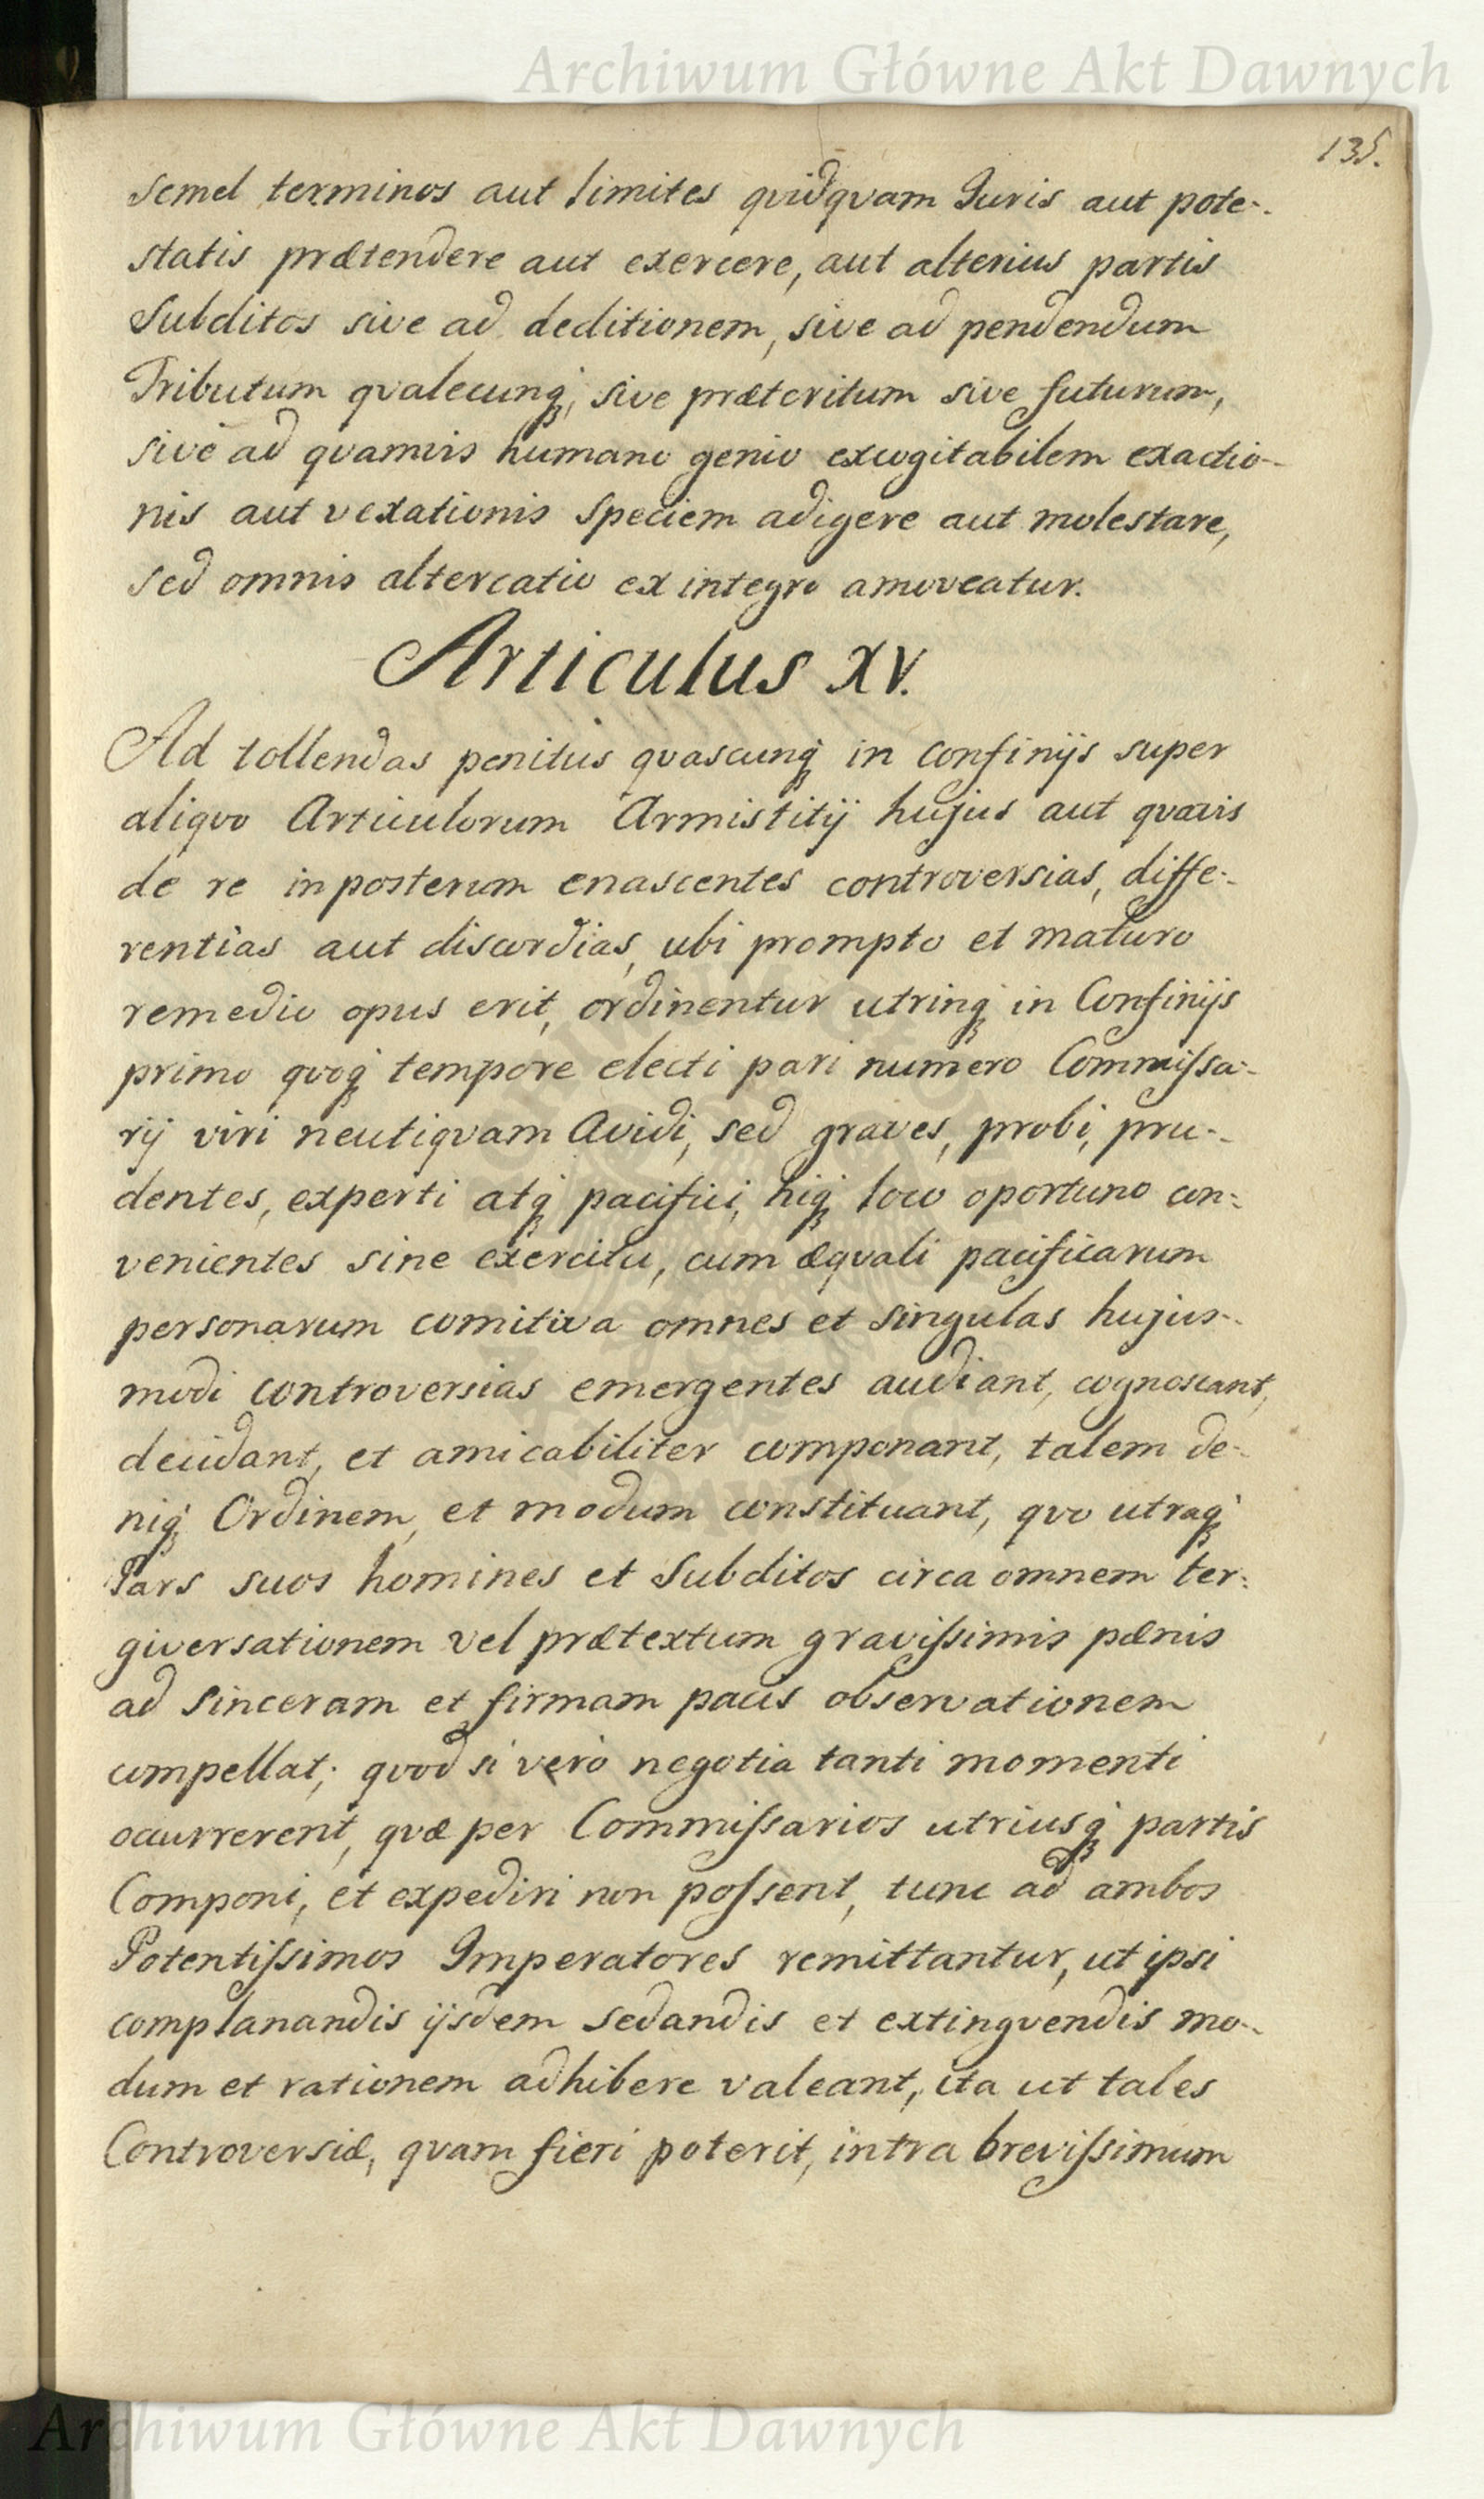 Archiwum Główne Akt Dawnych
135.
semel terminos aut limites quidquam Iuris aut pote-
statis prætendere aut exercere, aut alterius partis
Subditos sive ad deditionem, sive ad pendendum
Tributum qvalecunq́, sive præteritum sive futurum,
sive ad qvamvis humano genio excogitabilem exactio-
nis aut vexationis speciem adigere aut molestare,
sed omnis altercatio ex integro amoveatur.
Articulus XV.
Ad tollendas penitus qvascunq́ in confinijs super
aliqvo Articulorum Armistitij hujus aut qvavis
de re in posterum enascentes controversias, diffe-
rentias aut discordias, ubi prompto et maturo
remedio opus erit, ordinentur utrinq́ in Confinijs
primo qvoq́ tempore electi pari numero Commiſsa-
rij viri neutiqvam Avidi, sed graves, probi, pru-
dentes, experti atq́ pacifici, hiq́ loco oportuno con-
venientes sine exercitu, cum æqvali pacificarum
personarum comitiva omnes et singulas hujus-
modi controversias emergentes audiant, cognoscant,
decidant, et amicabiliter componant, talem de-
niq́ Ordinem, et modum constituant, qvo utraq́
Pars suos homines et Subditos circa omnem ter-
giversationem vel prætextum graviſsimis pænis
ad sinceram et firmam pacis observationem
compellat; qvod si verò negotia tanti momenti
occurrerent, qvæ per Commiſsarios utriusq́ partis
Componi, et expediri non poſsent, tunc ad ambos
Potentiſsimos Imperatores remittantur, ut ipsi
complanandis ijsdem sedandis et extingvendis mo-
dum et rationem adhibere valeant, ita ut tales
Controversiæ, qvam fieri poterit, intra breviſsimum
Archiwum Główne Akt Dawnych